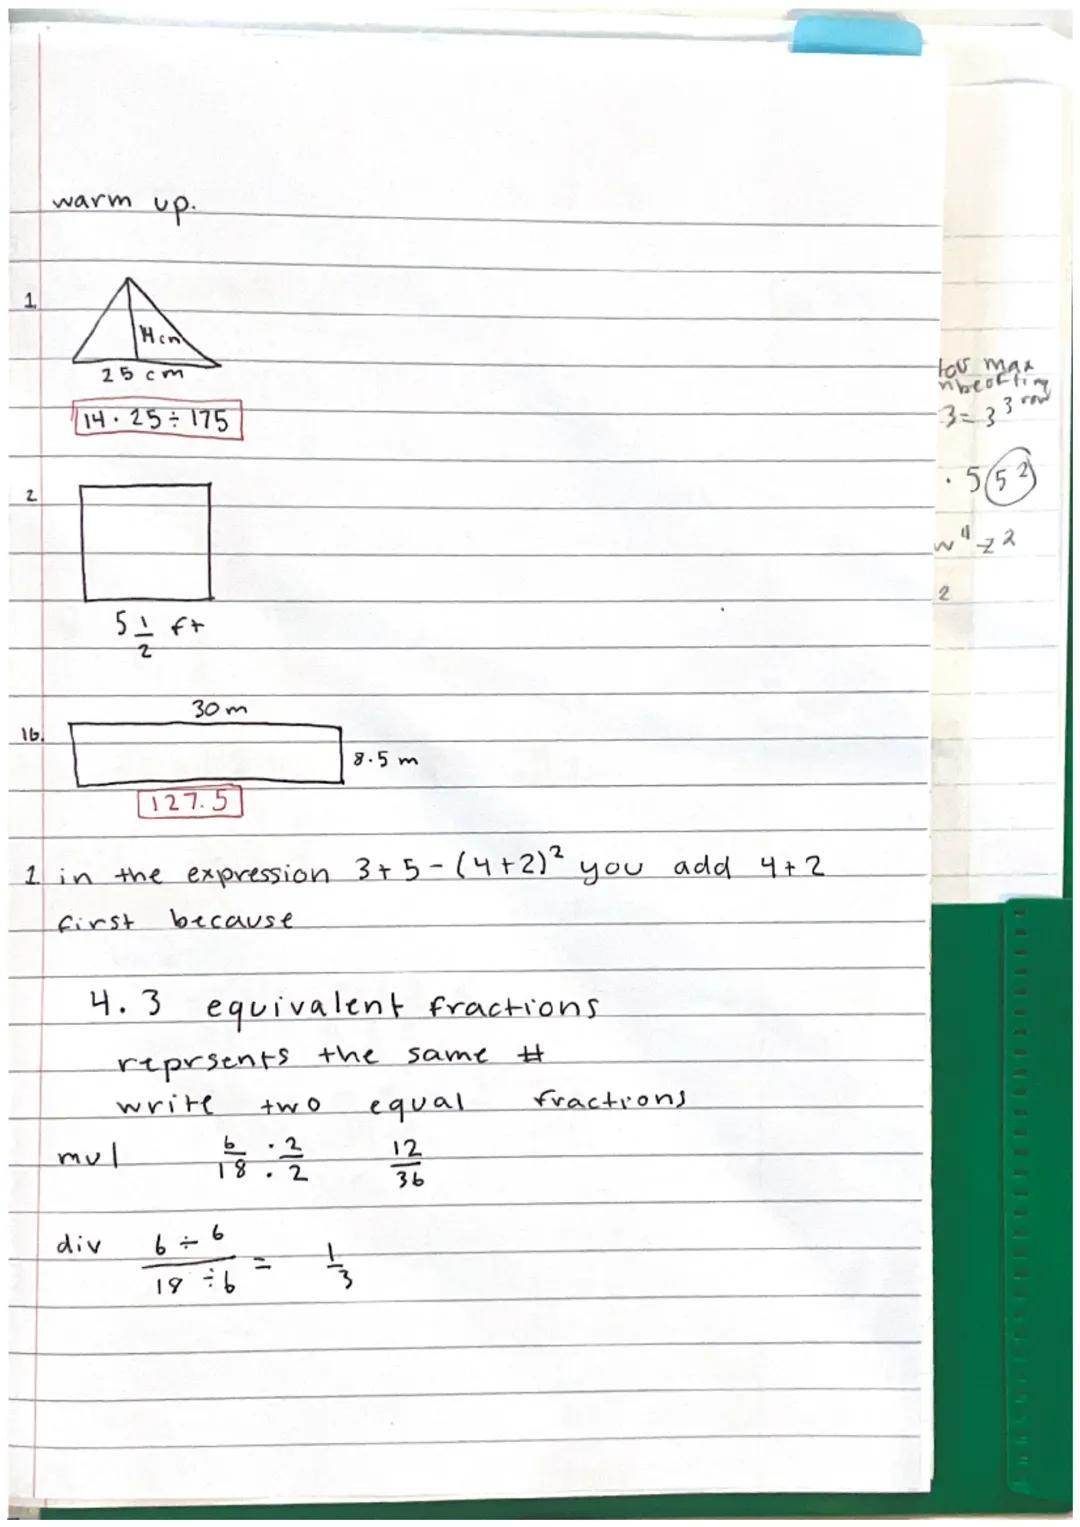 warm up.
1.
14 cm
25 cm
14 · 25 ÷ 175
2
5 1/2 ft
30 m
16.
8.5 m
127.5
1. in the expression 3+5-(4+2)² you add 4+2
first because
4.3 equivalent fractions
reprsents the same #
write two equal fractions
mul 6/18 · 2/2 12/36
div 6÷6/18÷6 = 1/3
max
3= 3³ row
· 5 (5²)
w⁴ z²
2